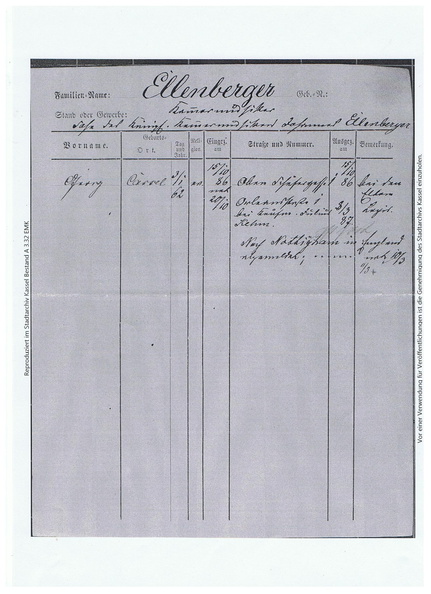 Familien-Name: Ellenberger Geb.-N.:
Kammermusiker
Stand oder Gewerbe:
Sohn des Königl. Kammermusikers Johannes Ellenberger
Vorname. Geburts-Ort. Tag und Jahr. Reli-gion. Eingez. am Straße und Nummer. Ausgez. am Bemerkung.
Georg Cassel 3/1 62 ev. 15/10 86 Oben 15/10 86 bei den Eltern
20/10 Orleansstraße 1 3/3 87
bei Kaufm. Julius
Nach Nottingham in England
abgemeldet,
Reproduziert im Stadtarchiv Kassel Bestand A 3.32 EMK
Vor einer Verwendung für Veröffentlichungen ist die Genehmigung des Stadtarchivs Kassel einzuholen.